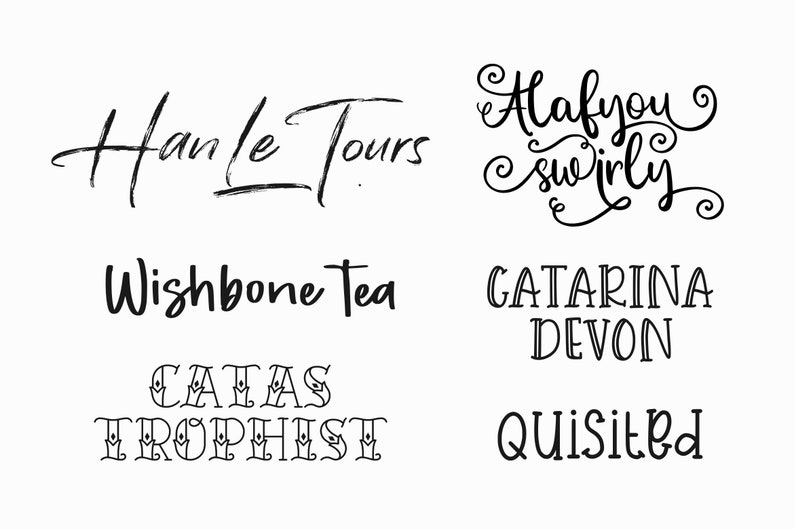 Han Le Tours
Alafyou
swirly
Wishbone Tea
CATARINA
DEVON
CATAS
TROPHIST
QUisitEd